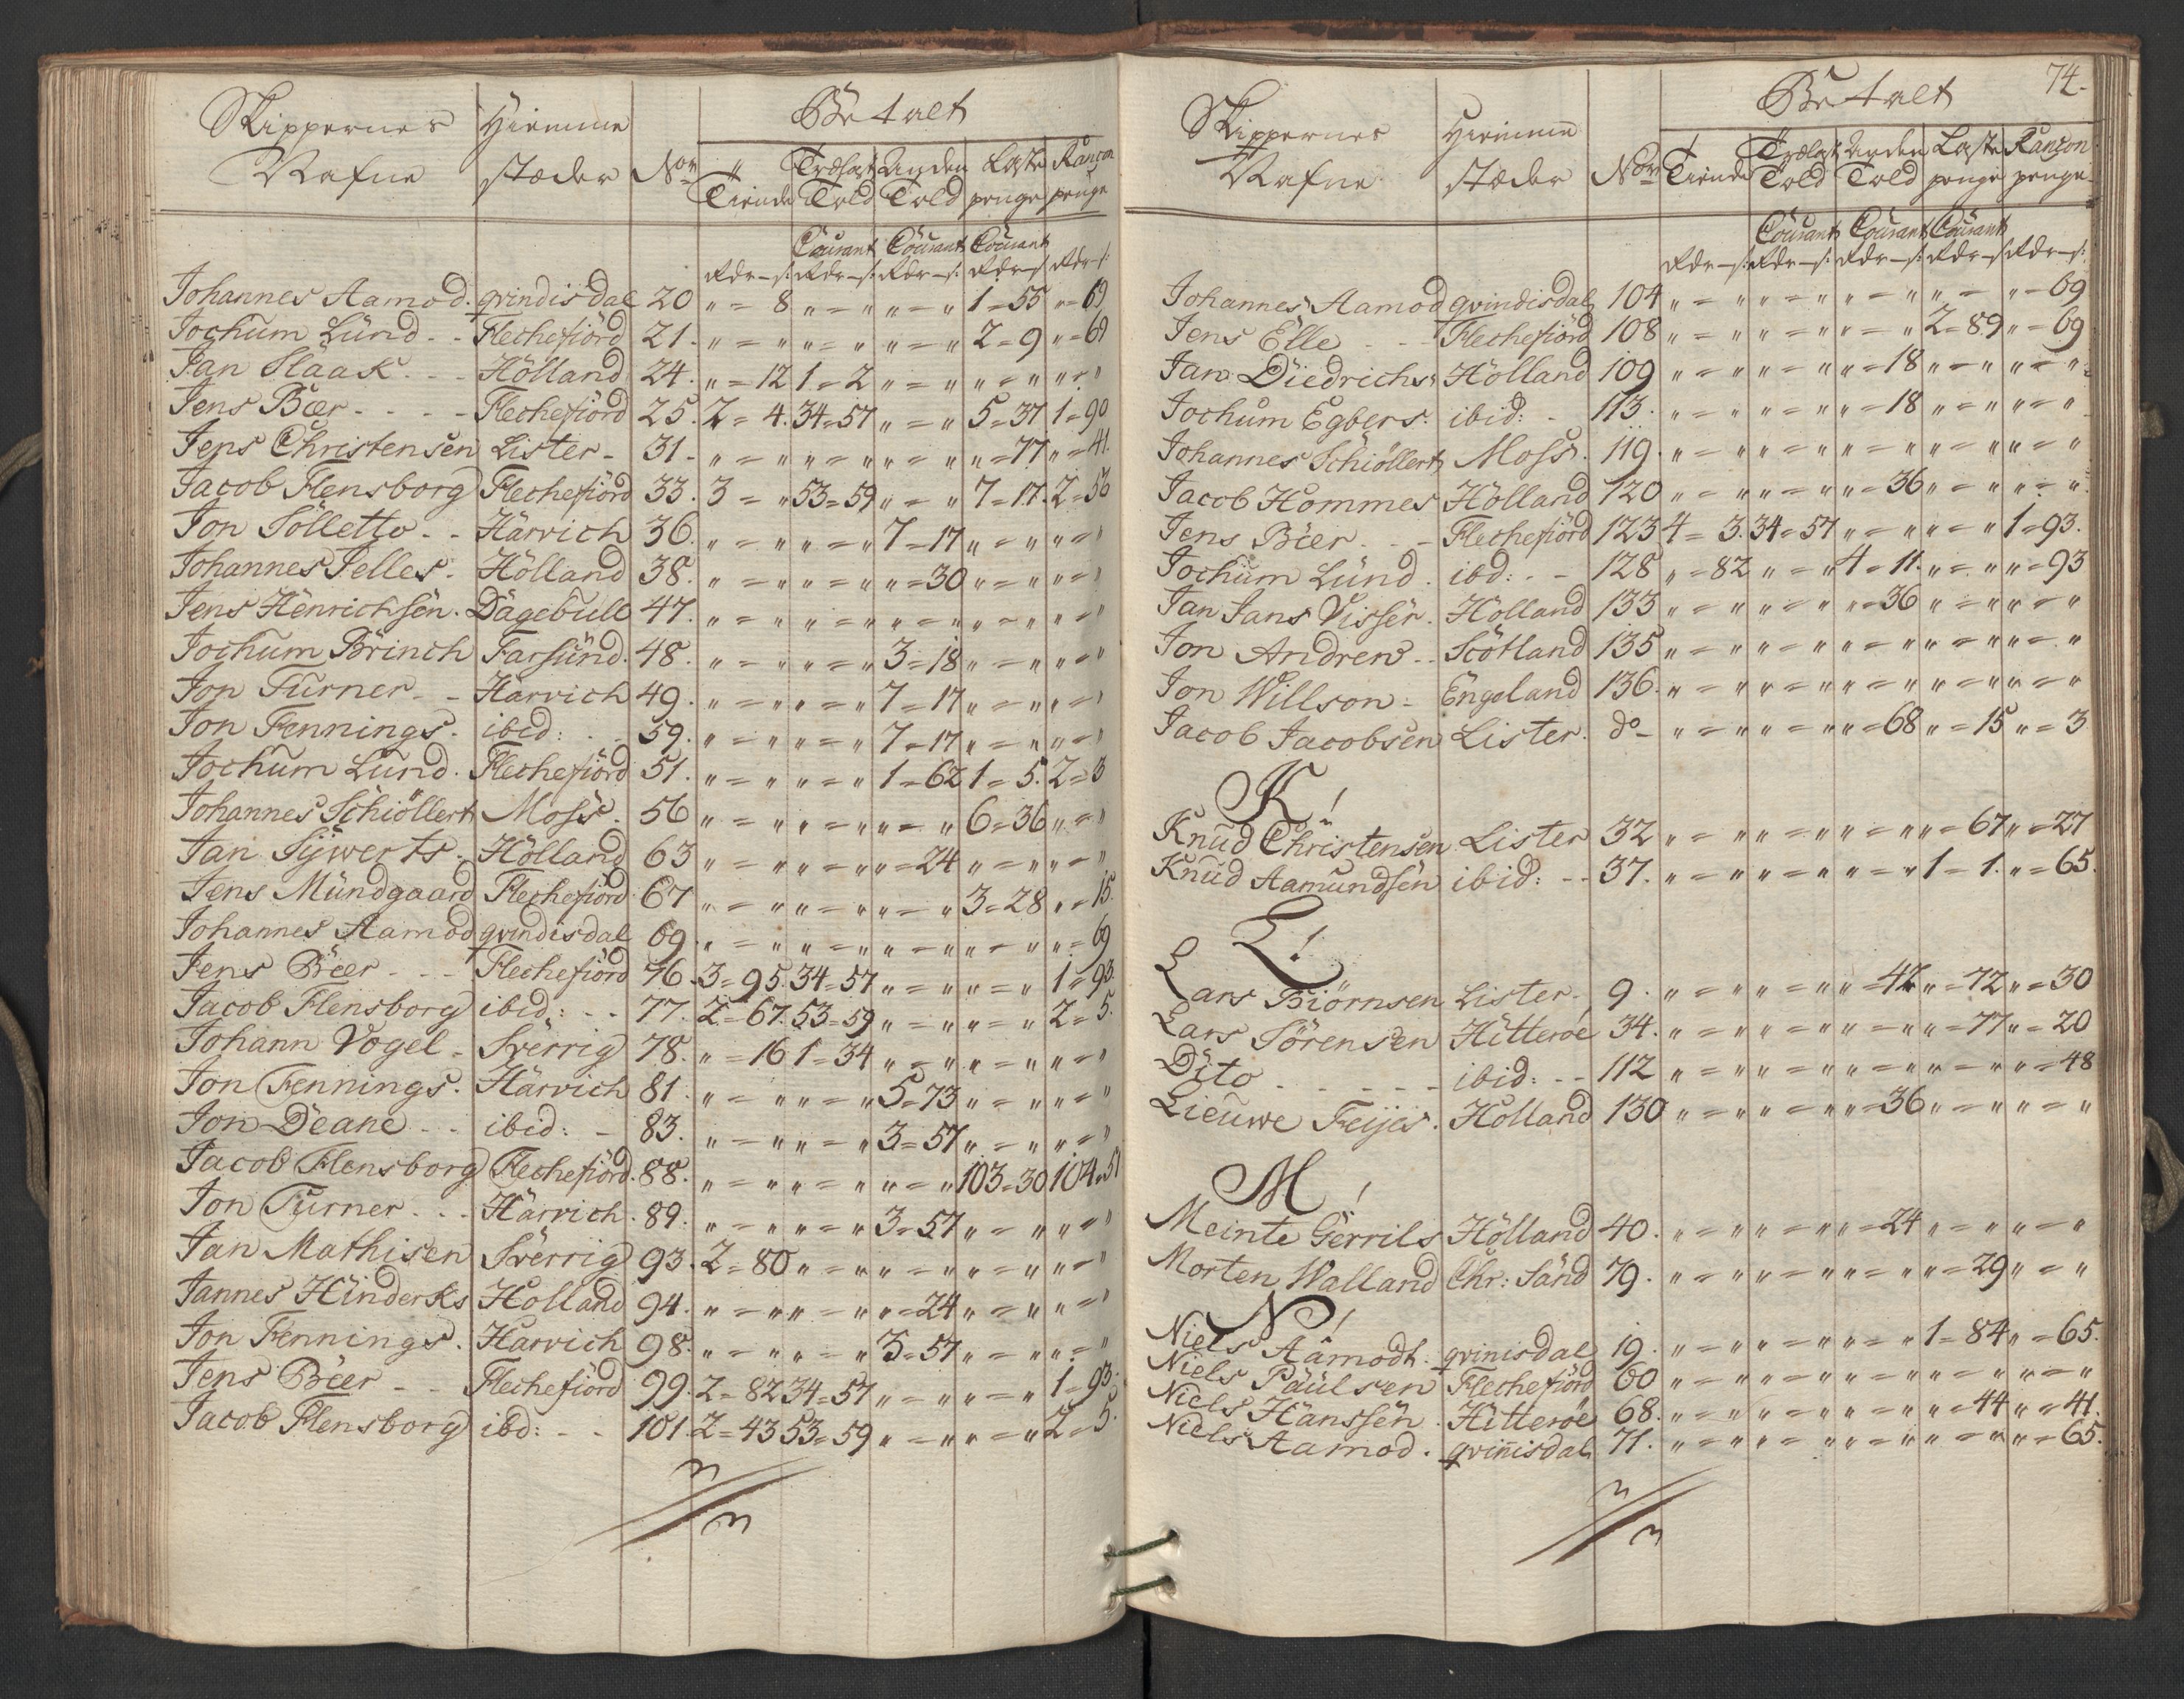 Skippernes Hiemme Betalt
Nafne stæder No.
Tiende Trælast Told Anden Told Laste penge Rançon penge
Courant Courant Courant
Rdr - s: Rdr - s: Rdr - s: Rdr - s: Rdr - s:
Johannes Aamod. qvindisdal 20 " = 8 " = " " = " 1 = 55 " = 69
Jochum Lünd - - Flechefiörd 21. " = " " = " " = " 2 = 9 " = 69
Jan Slaak - - Hölland 24. " = 12 1 = 2 " = " " = " " = "
Jens Bær - - - - Flechefiörd 25. 2 = 4. 34 = 57 " = " 5 = 37 1 = 90
Jens Christensen Lister - 31 - " = " " = " " = " " = 77 " = 41.
Jacob Flensborg Flechefiörd 33. 3 = " 53 = 59 " = " 7 = 17. 2 = 50
Jon Sölletto - - Härvich 36. " = " " = " 7 = 17 " = " " = "
Johannes Jelles. Hölland 38. " = " " = " " = 30 " = " " = "
Jens Henrichsen. Dägebüll 47. " = " " = " " = " " = " " = "
Jochum Brinch Farsünd. 48. " = " " = " 3 = 18 " = " " = "
Jon Turner - - Härvich 49. " = " " = " 7 = 17 " = " " = "
Jon Fennings. ibid: - - 59. " = " " = " 7 = 17 " = " " = "
Jochum Lünd. Flechefiörd 51. " = " " = " 1 = 62 1 = 5. 2 = 3
Johannes Schiöllert Moss. 56 " = " " = " " = " 6 = 36 " = "
Jan Sÿwerts. Hölland 63 " = " " = " " = 24 " = " " = "
Jens Mündgaard Flechefiörd 67 " = " " = " " = " 3 = 28 " = 15.
Johannes Aamod qvindisdal 69. " = " " = " " = " " = " " = 69
Jens Beer - - - Flechefiörd 76. 3 = 95. 34 = 57 " = " " = " 1 = 93.
Jacob Flensborg ibid: - - 77. 2 = 67. 53 = 59 " = " " = " 2 = 5.
Johann Vogel - Sverrig 78. " = 16 1 = 34 " = " " = " " = "
Jon Fennings. Härvich 81. " = " " = " 5 = 73 " = " " = "
Jon Deane - - ibid: - 83. " = " " = " 3 = 57 " = " " = "
Jacob Flensborg Flechefiörd. 88. " = " " = " " = " 103 = 30 104 = 51
Jon Turner - - - Härvich. 89. " = " " = " 3 = 57 " = " " = "
Jan Mathisen Sverrig 93. 2 = 80 " = " " = " " = " " = "
Jannes Hinderks Hölland 94. " = " " = " " = 24 " = " " = "
Jon Fennings. Härvich 98. " = " " = " 3 = 57 " = " " = "
Jens Beer - - Flechefiörd 99. 2 = 82 34 = 57 " = " " = " 1 = 93.
Jacob Flensborg ibd: - - 101. 2 = 43 53 = 59 " = " " = " 2 = 5.
74.
Skippernes Hiemme Betalt
Nafne stæder No.
Tiende Trælast Told Anden Told Laste penge Rançon penge
Courant Courant Courant
Rdr - s: Rdr - s: Rdr - s: Rdr - s: Rdr - s:
Johannes Aamod qvindisdal 104 " = " " = " " = " " = " " = 69
Jens Elle - - - Flechefiörd 108 " = " " = " " = " 2 = 89 " = 69
Jan Diedrichs Hölland 109 " = " " = " " = 18 " = " " = "
Jochum Egbers. ibid: - 113. " = " " = " " = 18 " = " " = "
Johannes Schiöllert Moss. 119. " = " " = " " = " " = " " = "
Jacob Hommes Hölland 120 " = " " = " " = 36 " = " " = "
Jens Beer - - - Flechefiörd 123 4 = 3. 34 = 57 " = " " = " 1 = 93.
Jochum Lünd. ibd: - - 128 " = 82 " = " 4 = 11. " = " " = 93
Jan Jans Visser. Hölland 133 " = " " = " " = 36 " = " " = "
Jon Andrew - - Scötland 135 " = " " = " " = " " = " " = "
Jon Willson - Engeland 136. " = " " = " " = " " = " " = "
Jacob Jacobsen Lister. do - " = " " = " " = 68 " = 15 " = 3
K!
Knud Christensen Lister 32 " = " " = " " = " " = 67 " = 27
Knud Aamundsen ibid: - - 37. " = " " = " " = " 1 = 1. " = 65.
L!
Lars Biörnsen Lister - 9. " = " " = " " = 42 " = 72 " = 30
Lars Sörensen Hitteröe 34. " = " " = " " = " " = 77 " = 20
Dito - - - - - - ibid: - - 112 " = " " = " " = " " = " " = 48
Lieuwe Feijes. Hölland 130 " = " " = " " = 36 " = " " = "
M!
Meinte Gerrils Hölland 40. " = " " = " " = 24 " = " " = "
Morten Walland Chr: Sand 79. " = " " = " " = " " = 29 " = "
N!
Niels Aamodt. qvinisdal 19. " = " " = " " = " 1 = 84 " = 65.
Niels Päülsen Flechefiörd 60 " = " " = " " = " " = " " = "
Niels Hanssen. Hitteröe 68. " = " " = " " = " " = 44 " = 41.
Niels Aamod. qvinisdal 71. " = " " = " " = " " = " " = 65.